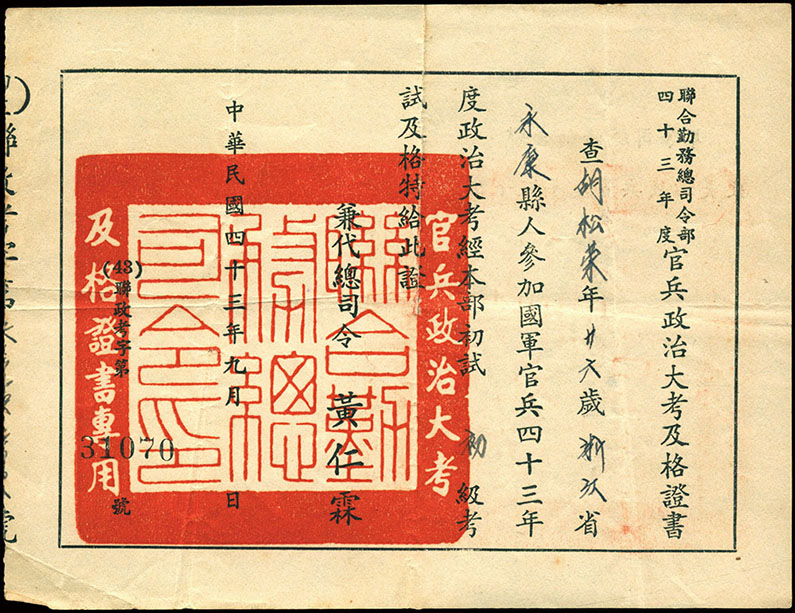 聯合勤務總司令部
四十三年度
官兵政治大考及格證書
查胡松榮年廿六歲浙江省
永康縣人參加國軍官兵四十三年
度政治大考經本部初試 初 級考
試及格特給此證
兼代總司令 黃仁霖
中華民國四十三年九月 日
(43)聯政考字第
31070
號
官兵政治大考
及格證書專用
聯合勤
務總
司令印